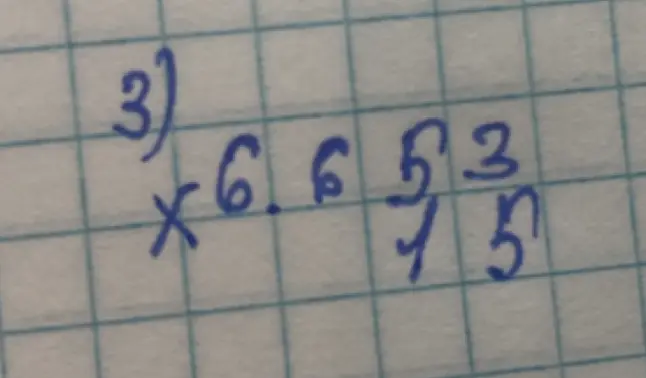 3)
× 6.653
15